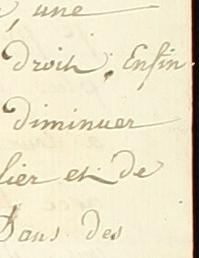 , une
droit, Enfin
diminuer
lier et de
Dans des